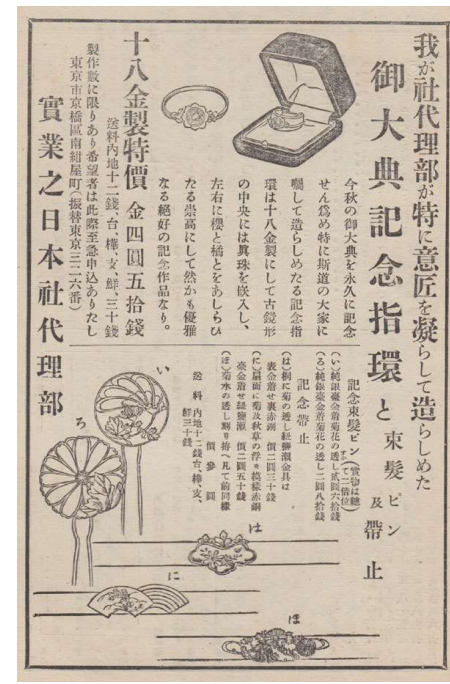 我が社代理部が特に意匠を凝らして造らしめた
御大典記念指環と束髮ピン及帶止
今秋の御大典を永久に記念
せん爲め特に斯道の大家に
囑して造らしめたる記念指
環は十八金製にして古鏡形
の中央には眞珠を嵌入し、
左右に櫻と橘とをあしらひ
たる崇高にして然かも優雅
なる絕好の記念作品なり。
十八金製特價 金四圓五拾錢
送料内地十二錢、台、樺、支、鮮、三十錢
製作數に限りあり希望者は此際至急申込ありたし
東京市京橋區南紺屋町(振替東京三二六番)
實業之日本社代理部
記念束髮ピン
(い)純銀臺金着菊花の透し貳圓六拾錢
(ろ)純銀臺金着菊花の透し二圓八拾錢
記念帶止
(は)桐に菊の透し經鎖瀬金具は
表金着せ裏赤銅 價二圓三十錢
(に)扇面に菊及秋草の浮模樣赤銅
臺金着せ經鎖瀬 價二圓五十錢
(ほ)菊水の透し彫り拵へ凡て前同樣
價參圓
送料 内地十二錢台、樺、支、
鮮三十錢
い
ろ
は
に
ほ